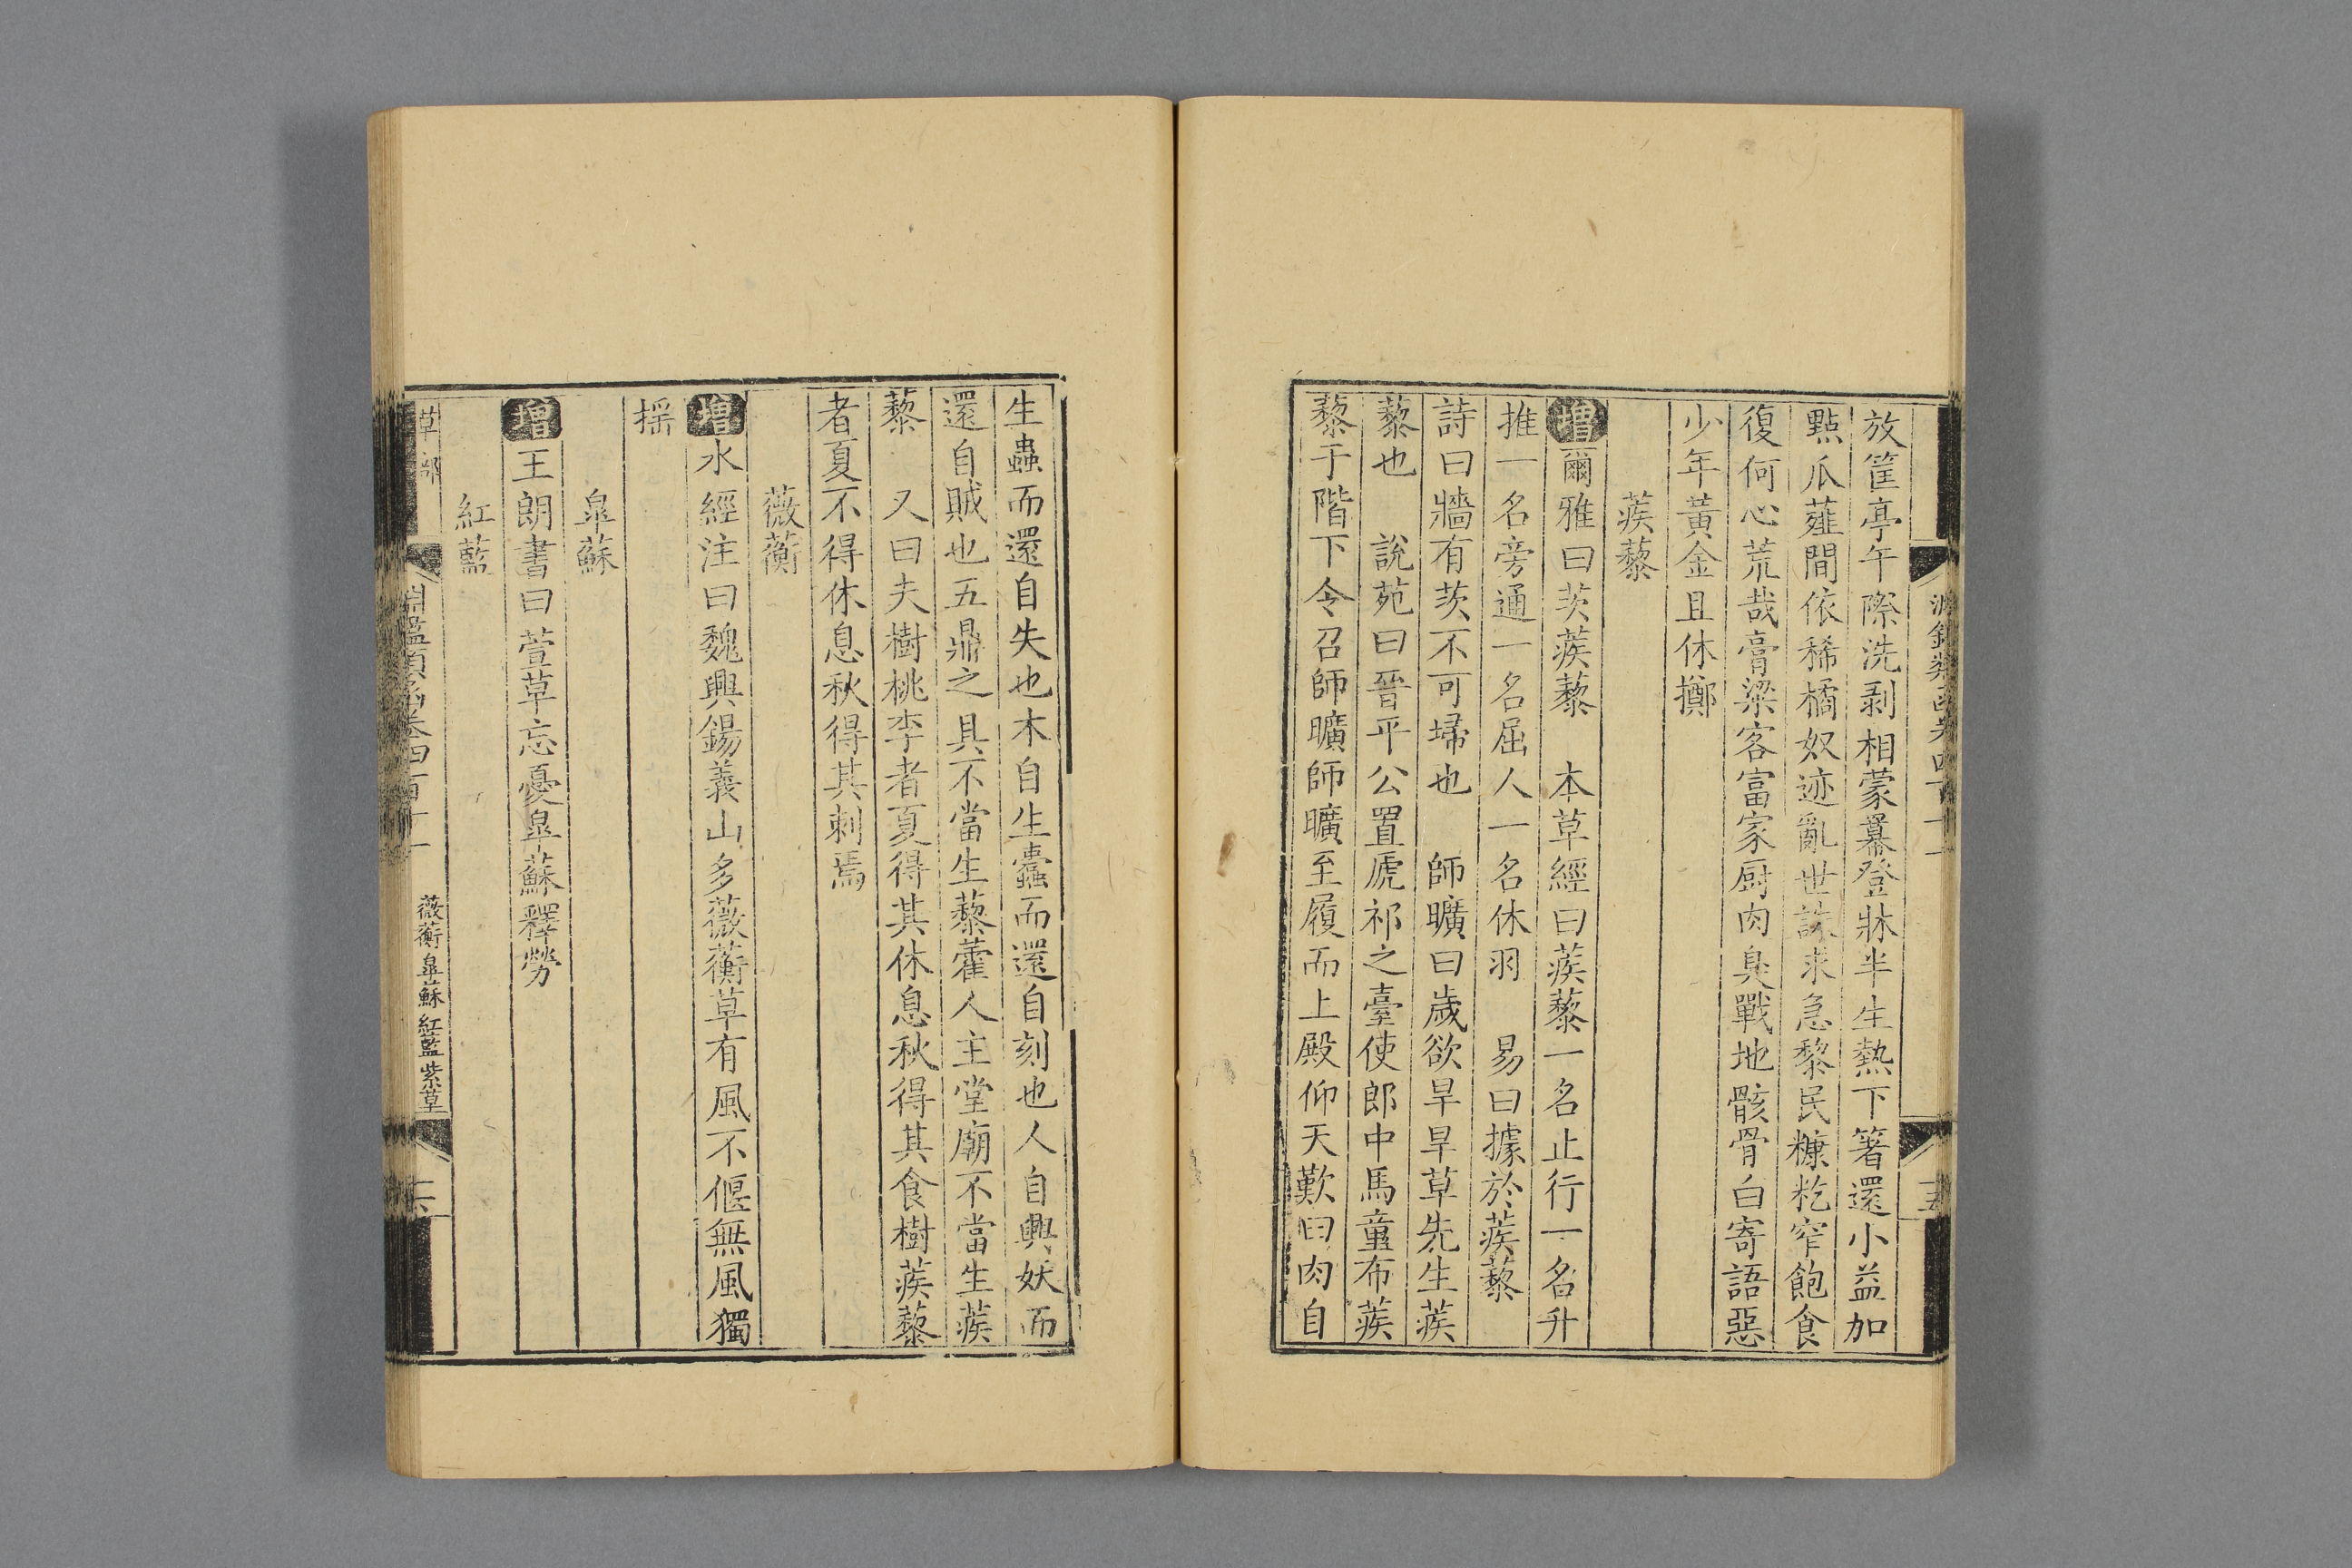 放筐亭午際洗剥相蒙羃登牀半生熱下箸還小益加
點瓜薤間依稀橘奴迹亂世誅求急黎民糠籺窄飽食
復何心荒哉膏粱客富家厨肉臭戰地骸骨白寄語惡
少年黃金且休擲
蒺藜
增爾雅曰茨蒺藜 本草經曰蒺藜一名止行一名升
推一名旁通一名屈人一名休羽 易曰據於蒺藜
詩曰牆有茨不可埽也 師曠曰歲欲旱旱草先生蒺
藜也 說苑曰晉平公置虒祁之臺使郎中馬童布蒺
藜于階下令召師曠師曠至履而上殿仰天歎曰肉自
生蟲而還自失也木自生蠹而還自刻也人自興妖而
還自賊也五鼎之具不當生藜藿人主堂廟不當生蒺
藜 又曰夫樹桃李者夏得其休息秋得其食樹蒺藜
者夏不得休息秋得其刺焉
薇蘅
增水經注曰魏興鍚義山多薇蘅草有風不偃無風獨
揺
皐蘇
增王朗書曰萱草忘憂皐蘇釋勞
紅藍
草部
淵鑑類函卷四百十一
薇蘅 皐蘇 紅藍 紫草